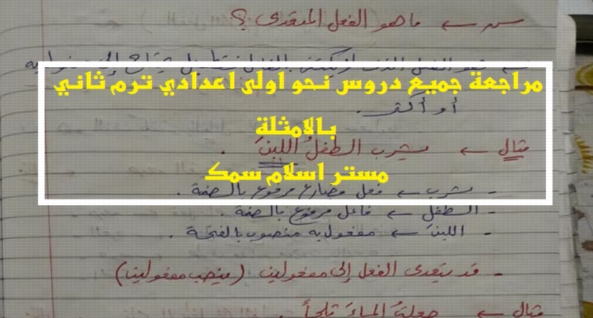 س ← ما هو الفعل المتعدى ؟
مراجعة جميع دروس نحو اولى اعدادي ترم ثاني
بالامثلة
مستر اسلام سمك
أو أكثر.
مثال ← يشرب الطفلُ اللبنَ .
- يشرب ← فعل مضارع مرفوع بالضمة .
- الطفل ← فاعل مرفوع بالضمة .
- اللبن ← مفعول به منصوب بالفتحة .
- قد يتعدى الفعل إلى مفعولين (ينصب مفعولين)
مثال ← جعلتُ الماءَ ثلجاً .